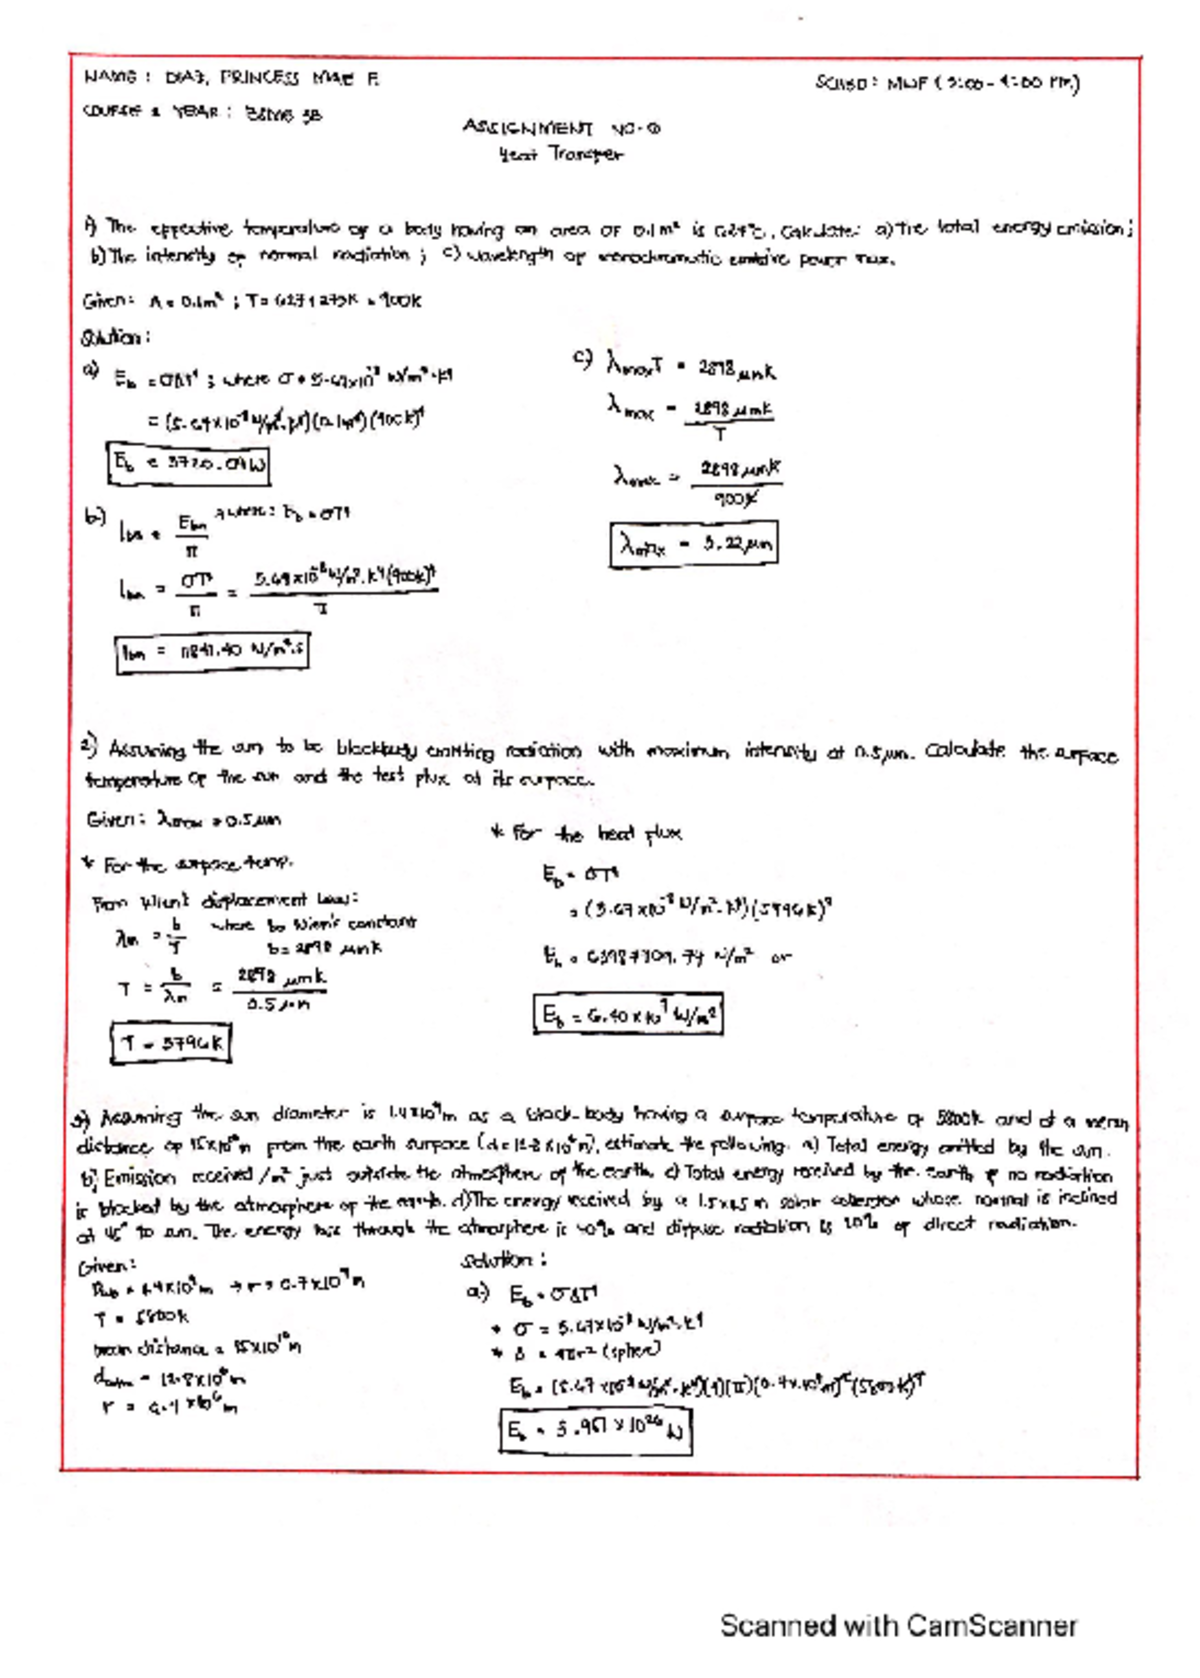 NAME : DIAZ, PRINCESS MAE F.
SCHED : MWF ( 3:00 - 4:00 PM)
COURSE & YEAR : BSME 3B
ASSIGNMENT NO.
Heat Transfer
1) The effective temperature of a body having an area of 0.1m² is 627°C. Calculate: a) The total energy emission;
b) The intensity of normal radiation ; c) wavelength of monochromatic emissive power max.
Given: A = 0.1m² ; T = 627+273K = 900K
Solution :
a) Eb = σAT⁴ ; where σ = 5.67x10⁻⁸ W/m²·K⁴
= (5.67x10⁻⁸ W/m²·K⁴)(0.1m²)(900K)⁴
Eb = 3720.09W
b) Ibn = Ebn / π where: Eb = σT⁴
Ibn = σT⁴ / π = 5.67x10⁻⁸ W/m²·K⁴(900K)⁴ / π
Ibn = 11841.40 W/m²·s
c) λmaxT = 2898 μmK
λmax = 2898 μmK / T
λmax = 2898 μmK / 900K
λmax = 3.22μm
2) Assuming the sun to be blackbody emitting radiation with maximum intensity at 0.5μm. Calculate the surface
temperature of the sun and the test flux at its surface.
Given : λmax = 0.5μm
* For the surface temp.
From Wien's displacement law :
λm = b / T where b= Wien's constant
b = 2898 μmK
T = b / λm = 2898 μmK / 0.5μm
T = 5796K
* For the heat flux
Eb = σT⁴
= (5.67x10⁻⁸ W/m²·K⁴)(5796K)⁴
Eb = W/m² or
Eb = 6.40 x 10⁷ W/m²
3) Assuming the sun diameter is 1.4x10⁹m as a black-body having a surface temperature of 5800K and at a mean
distance of 15x10¹⁰m from the earth surface (d=12.8x10⁶m), estimate the following. a) Total energy emitted by the sun.
b) Emission received /m² just outside the atmosphere of the earth. c) Total energy received by the earth if no radiation
is blocked by the atmosphere of the earth. d) The energy received by a 1.5x1.5 m solar collector whose normal is inclined
at 45° to sun. The energy loss through the atmosphere is 40% and diffuse radiation is 20% of direct radiation.
Given :
= 1.4x10⁹m → r = 0.7x10⁹m
T = 5800K
mean distance = 15x10¹⁰m
= 12.8x10⁶m
r = 6.4 x10⁶m
Solution :
a.) Eb = σAT⁴
* σ = 5.67x10⁻⁸ W/m²·K⁴
* A = 4πr² (sphere)
Eb = (5.67x10⁻⁸ W/m²·K⁴)(4)(π)(0.7x10⁹m)²(5800K)⁴
Eb = 3.951 x 10²⁶ W
Scanned with CamScanner